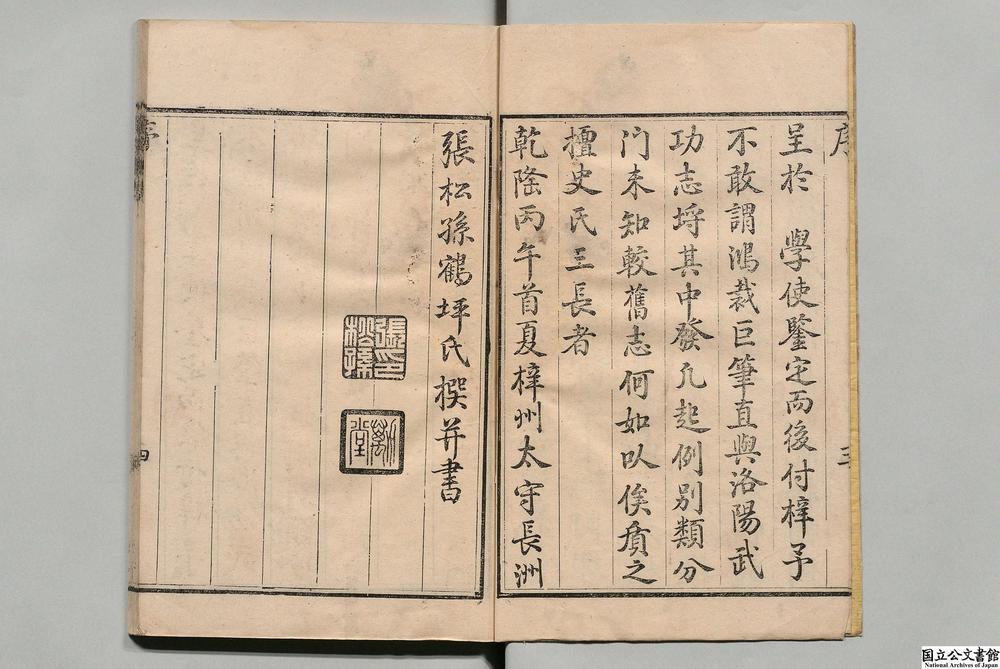 序
呈於 學使鑒定而後付梓予
不敢謂鴻裁巨筆直與洛陽武
功志埒其中發凡起例别類分
门未知較舊志何如以俟質之
擅史氏三長者
乾隆丙午首夏梓州太守長洲
張松孫鶴坪氏撰并書
張印松孫
四
国立公文書館
National Archives of Japan